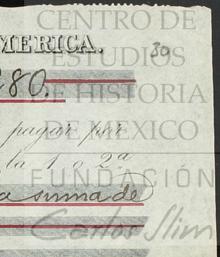 CENTRO DE
MERICA.
ESTUDIOS
30
80.
DE HISTORIA
pagar por
DE MEXICO
la 1 o 2a
FUNDACIÓN
a suma de
Carlos Slim